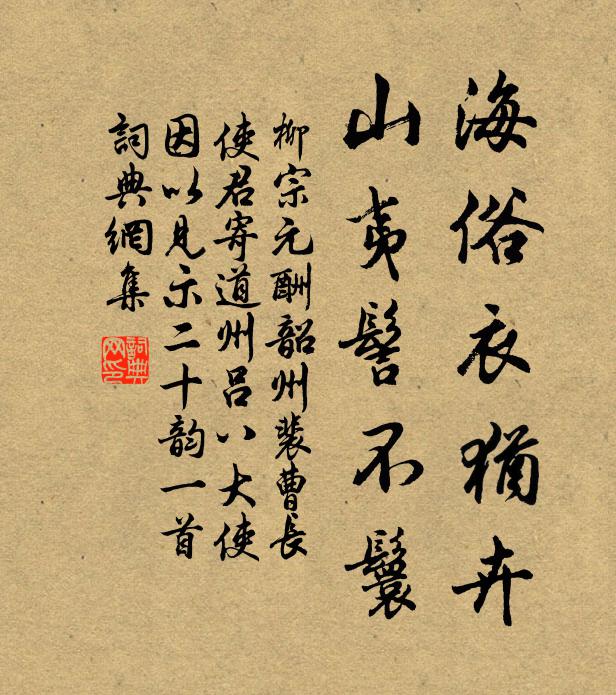 海俗衣犹卉
山夷髻不鬟
柳宗元酬韶州裴曹長
使君寄道州吕八大使
因以見示二十韵一首
詞典網集
詞典網印